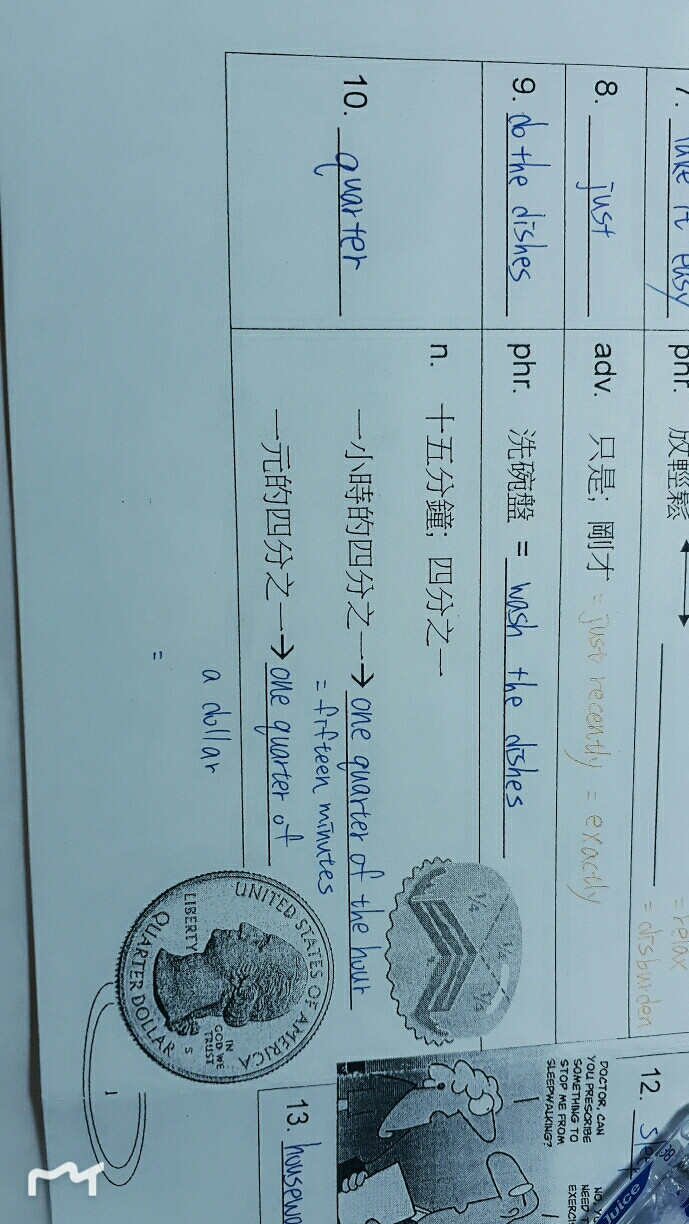 7. take it easy phr. 放輕鬆 ↔
= relax
= disburden
8. just adv. 只是; 剛才 = just recently = exactly
9. do the dishes phr. 洗碗盤 = wash the dishes
10. quarter n. 十五分鐘; 四分之一
一小時的四分之一→ one quarter of the hour
= fifteen minutes
一元的四分之一→ one quarter of
a dollar
=
1/4 1/4 1/4
UNITED STATES OF AMERICA
LIBERTY
IN
GOD WE
TRUST
S
QUARTER DOLLAR
12.
DOCTOR, CAN
YOU PRESCRIBE
SOMETHING TO
STOP ME FROM
SLEEPWALKING?
NEED
13.
Juice